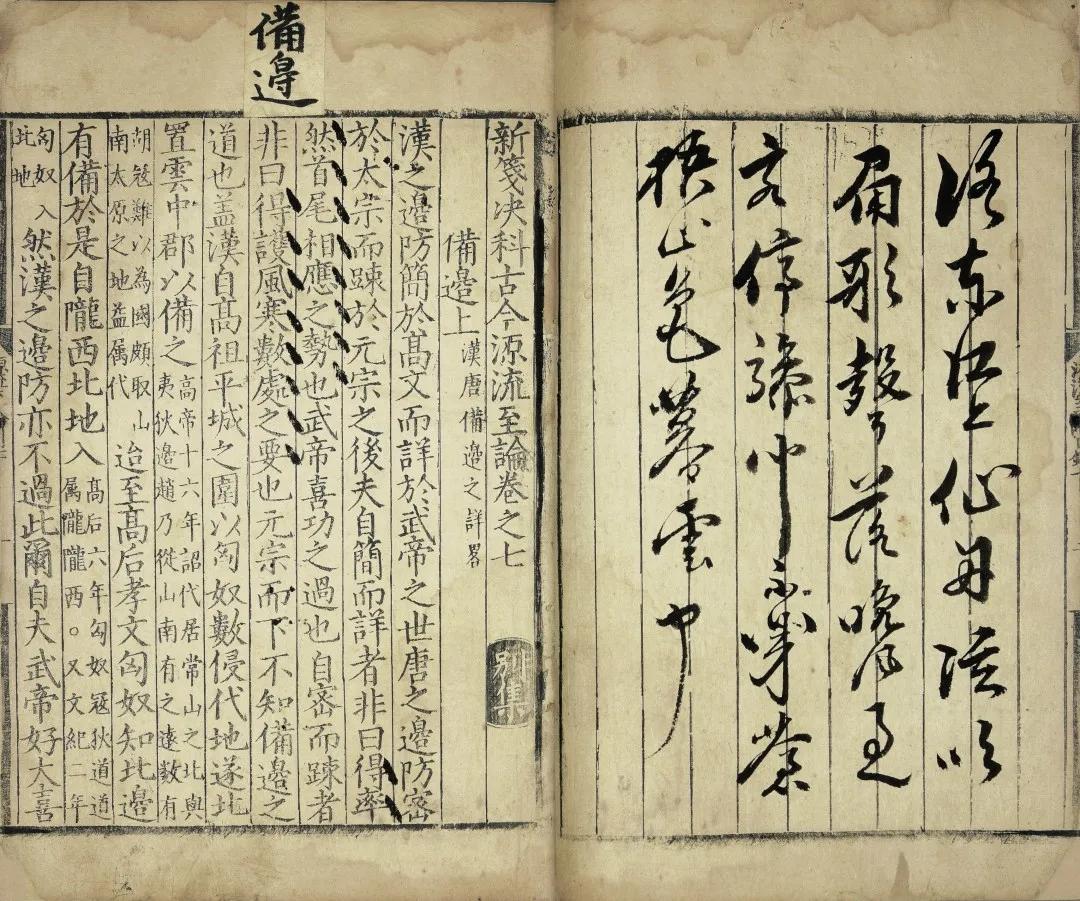 洛東江上仙舟泛吹
歌聲落晚風
客停驂聞不樂蒼
梧山色暮雲中
備邊
新箋决科古今源流至論卷之七
別集
備邊上 漢唐備邊之詳畧
漢之邊防簡於髙文而詳於武帝之世唐之邊防密
於太宗而踈於元宗之後夫自簡而詳者非曰得率
然首尾相應之勢也武帝喜功之過也自密而踈者
非曰得護風寒數處之要也元宗而下不知備邊之
道也盖漢自髙祖平城之圍以匈奴數侵代地遂北
置雲中郡以備之 高帝十六年詔代居常山之北與夷狄邊趙乃從山南有之遠數有
胡寇難以為國頗取山南太原之地益属代 迨至髙后孝文匈奴知北邊
有備於是自隴西北地入 髙后六年匈奴寇狄道道属隴隴西。又文紀二年
匈奴入北地 然漢之邊防亦不過此爾自夫武帝好大喜